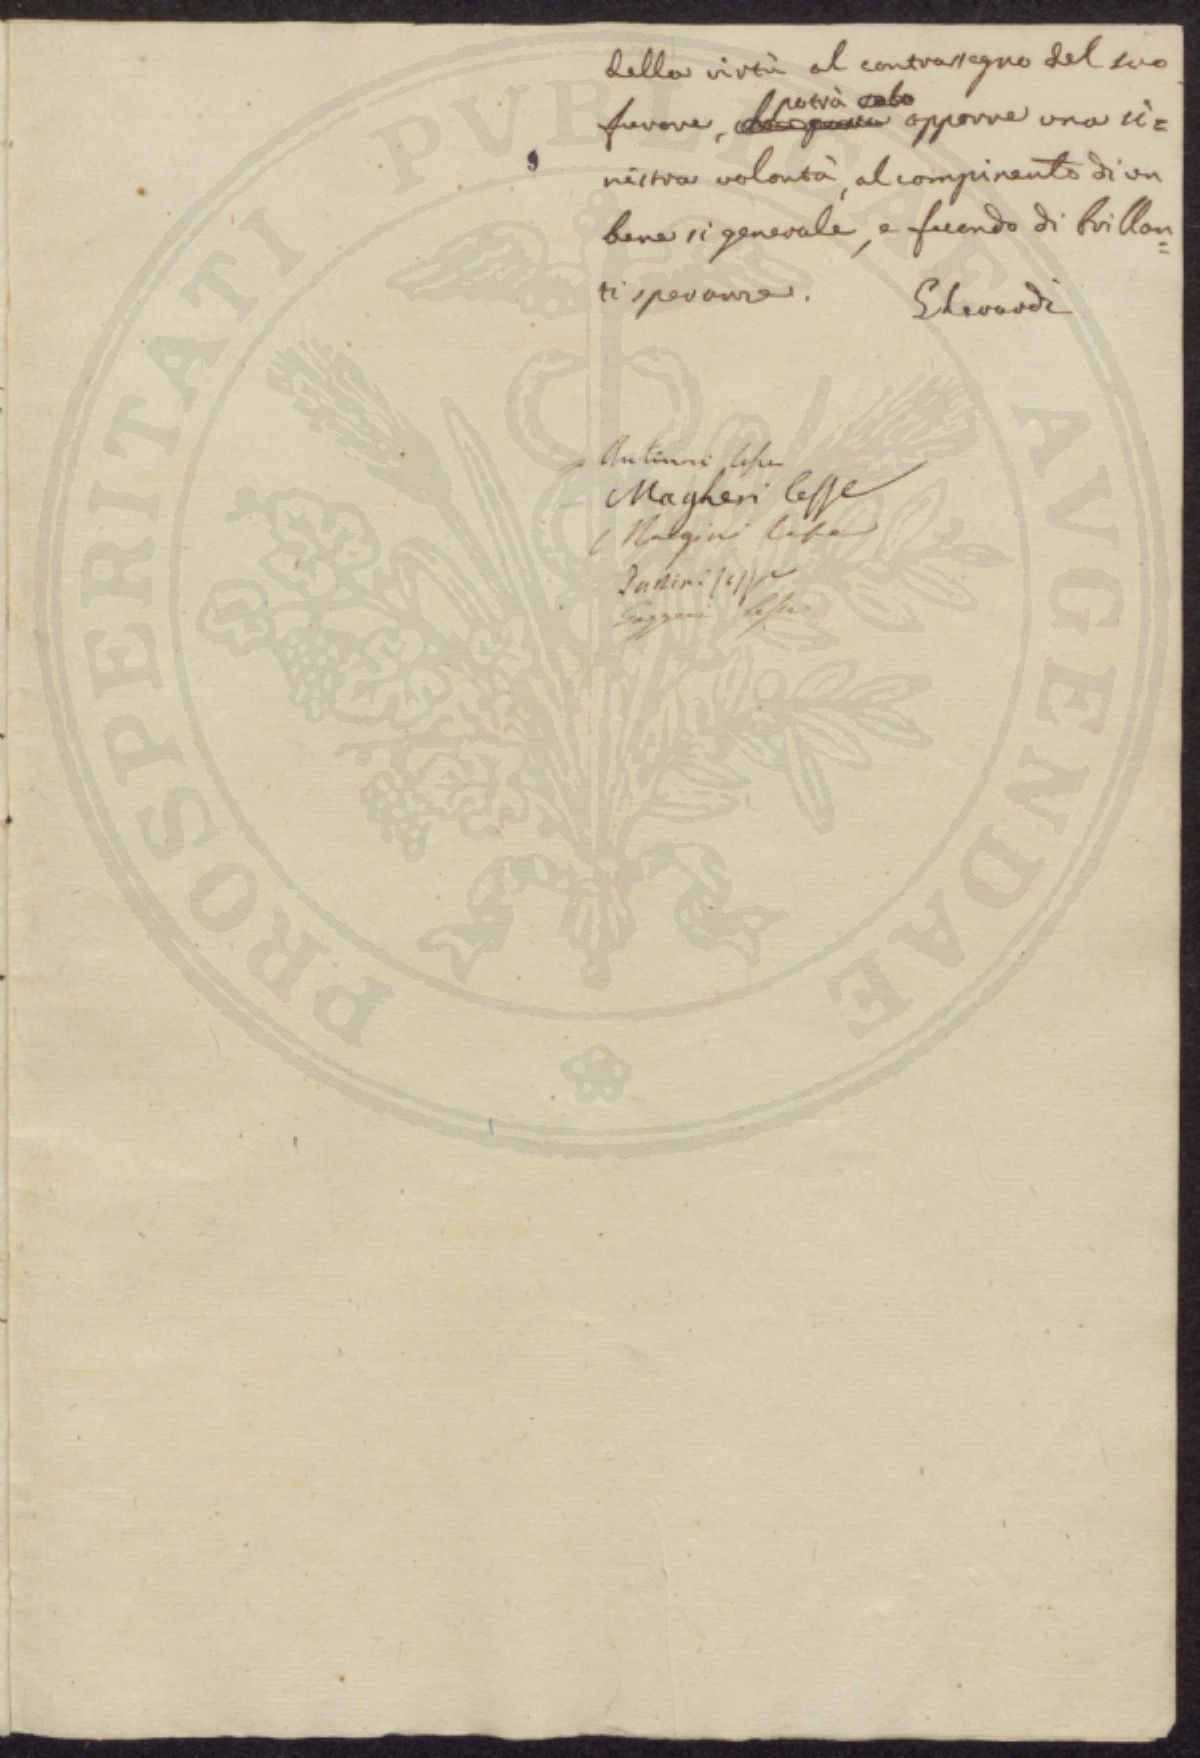 della virtù al contrassegno del suo
favore, potrà opporre una si=
nistra volontà, al compimento di un
bene si generale, e fecondo di brillan=
ti speranze.
Gherardi
Antinori lesse
Magheri lesse
lesse
lesse
lesse
PROSPERITATI PVBLICAE AVGENDAE